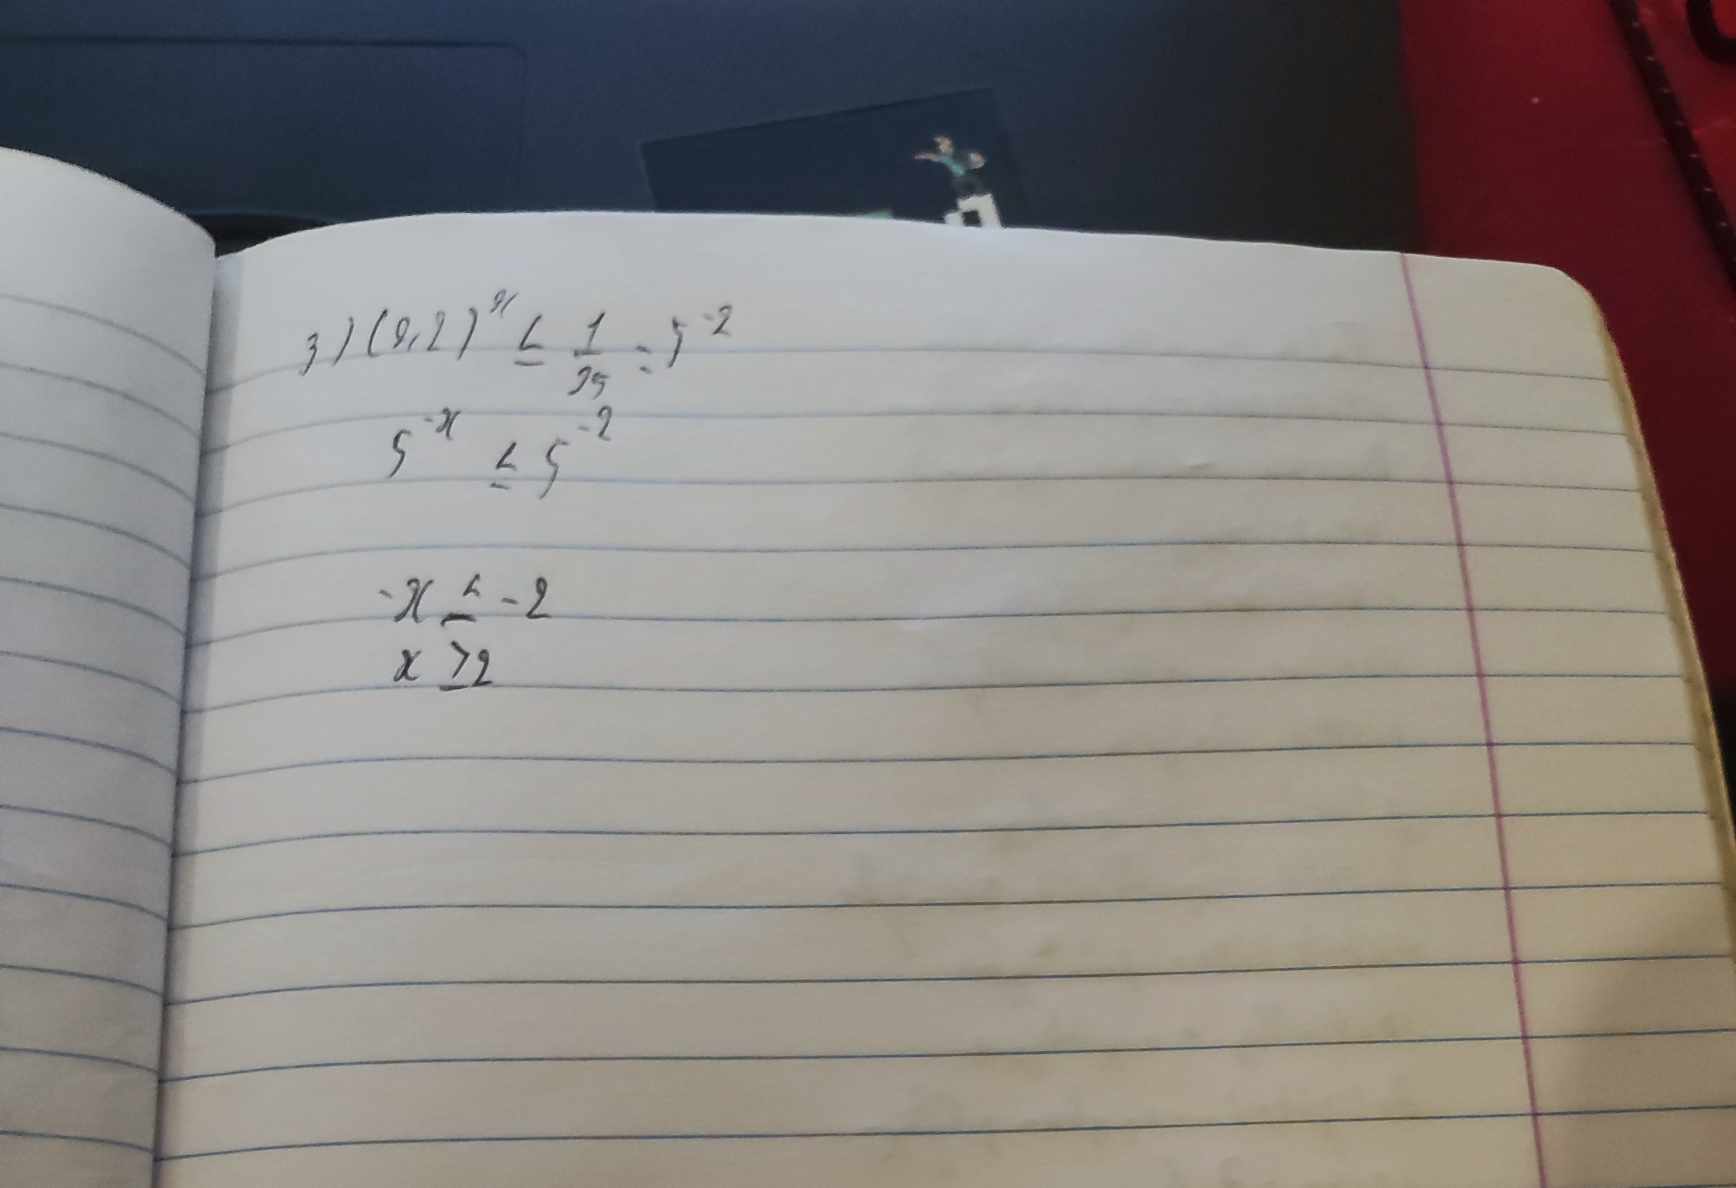 3) (0,2)^x ≤ 1/25 = 5^-2
5^-x ≤ 5^-2
-x ≤ -2
x ≥ 2